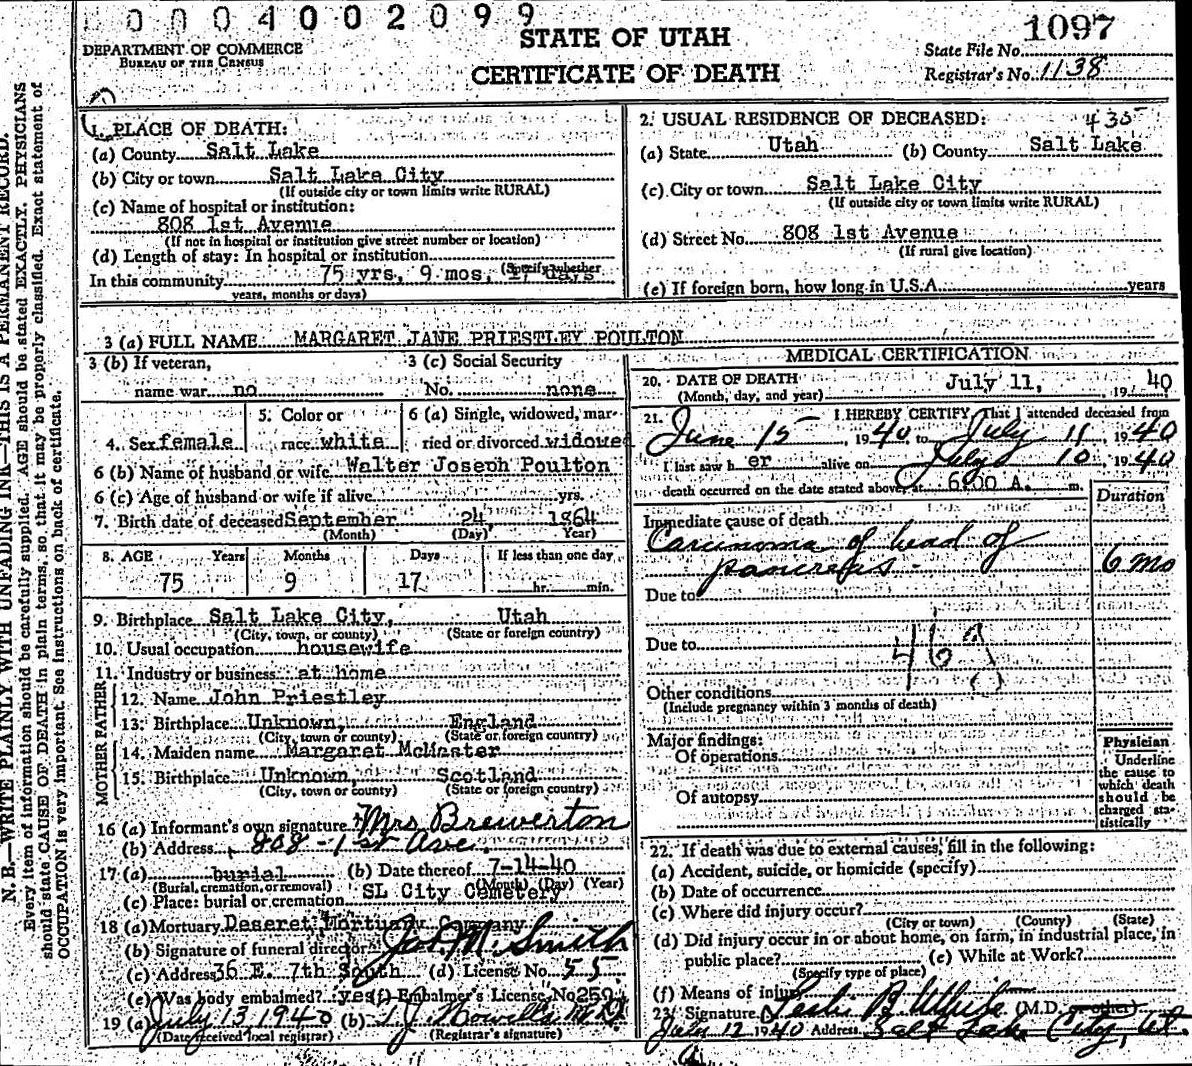 0004002099
DEPARTMENT OF COMMERCE
BUREAU OF THE CENSUS
STATE OF UTAH
CERTIFICATE OF DEATH
State File No. 1097
Registrar's No. 1138
1. PLACE OF DEATH:
(a) County Salt Lake
(b) City or town Salt Lake City
(If outside city or town limits write RURAL)
(c) Name of hospital or institution:
808 1st Avenue
(If not in hospital or institution give street number or location)
(d) Length of stay: In hospital or institution
(Specify whether
In this community 75 yrs, 9 mos, 17 days
years, months or days)
2. USUAL RESIDENCE OF DECEASED: 435
(a) State Utah (b) County Salt Lake
(c) City or town Salt Lake City
(If outside city or town limits write RURAL)
(d) Street No. 808 1st Avenue
(If rural give location)
(e) If foreign born, how long in U.S.A. years
3 (a) FULL NAME MARGARET JANE PRIESTLEY POULTON
3 (b) If veteran, 3 (c) Social Security
name war no No. none
4. Sex female 5. Color or race white 6 (a) Single, widowed, married or divorced widowed
6 (b) Name of husband or wife Walter Joseph Poulton
6 (c) Age of husband or wife if alive yrs.
7. Birth date of deceased September 24, 1864
(Month) (Day) (Year)
8. AGE Years Months Days If less than one day
75 9 17 hr. min.
9. Birthplace Salt Lake City, Utah
(City, town, or county) (State or foreign country)
10. Usual occupation housewife
11. Industry or business at home
FATHER
12. Name John Priestley
13. Birthplace Unknown, England
(City, town or county) (State or foreign country)
MOTHER
14. Maiden name Margaret McMaster
15. Birthplace Unknown, Scotland
(City, town or county) (State or foreign country)
16 (a) Informant's own signature Mrs Brewerton
(b) Address 808 - 1st Ave.
17 (a) burial (b) Date thereof 7-14-40
(Burial, cremation, or removal) (Month) (Day) (Year)
(c) Place: burial or cremation SL City Cemetery
18 (a) Mortuary Deseret Mortuary Company
(b) Signature of funeral director Jos. M. Smith
(c) Address 36 E. 7th South (d) License No. 55
(e) Was body embalmed? yes (f) Embalmer's License No. 259
19 (a) July 13 1940 (b) T J Howells M D
(Date received local registrar) (Registrar's signature)
MEDICAL CERTIFICATION
20. DATE OF DEATH July 11, 1940
(Month, day, and year)
21. I HEREBY CERTIFY, That I attended deceased from
June 15, 1940 to July 11, 1940
I last saw her alive on July 10, 1940
death occurred on the date stated above, at 6:00 A. m.
Duration
Immediate cause of death
Carcinoma of head of
pancreas - 6 mo
Due to
Due to 46
Other conditions
(Include pregnancy within 3 months of death)
Major findings:
Of operations
Of autopsy
Physician
Underline
the cause to
which death
should be
charged sta-
tistically
22. If death was due to external causes, fill in the following:
(a) Accident, suicide, or homicide (specify)
(b) Date of occurrence
(c) Where did injury occur?
(City or town) (County) (State)
(d) Did injury occur in or about home, on farm, in industrial place, in
public place? (e) While at Work?
(Specify type of place)
(f) Means of injury
23. Signature Leslie B. White (M.D.
July 12 1940 Address Salt Lake City, Ut.
N. B.—WRITE PLAINLY WITH UNFADING INK—THIS IS A PERMANENT RECORD.
Every item of information should be carefully supplied. AGE should be stated EXACTLY. PHYSICIANS
should state CAUSE OF DEATH in plain terms, so that it may be properly classified. Exact statement of
OCCUPATION is very important. See instructions on back of certificate.